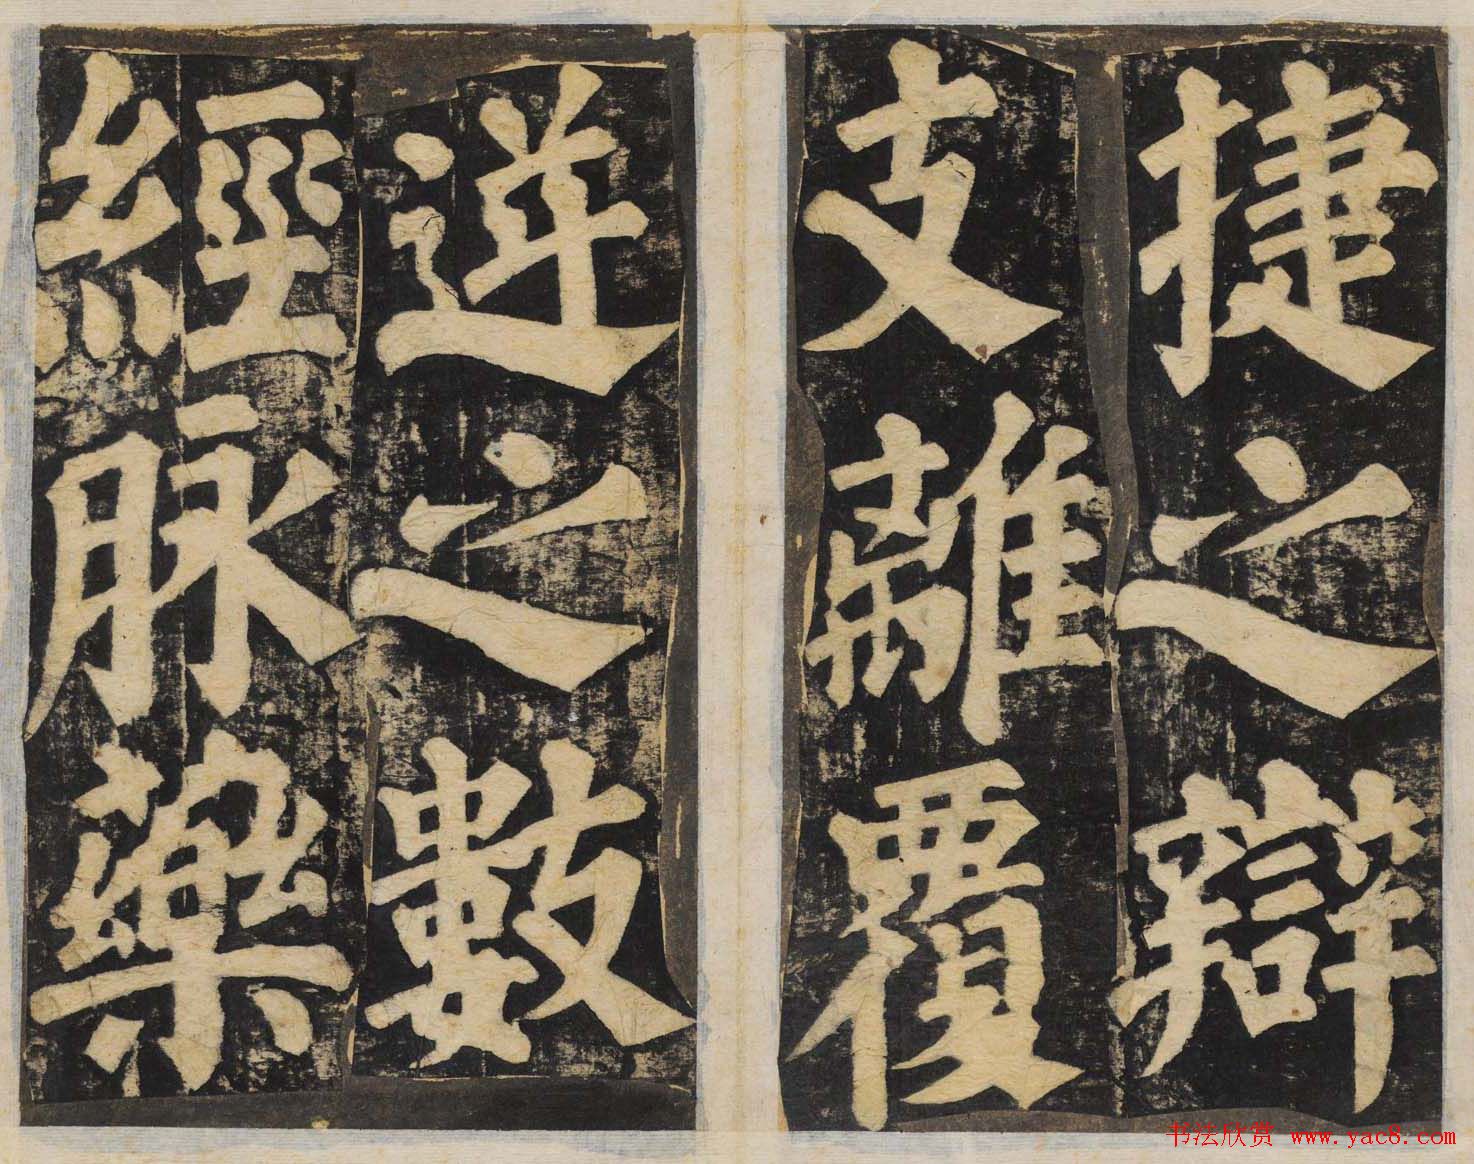 捷之辯
支離覆
逆之數
經脉藥
书法欣赏 www.yac8.com